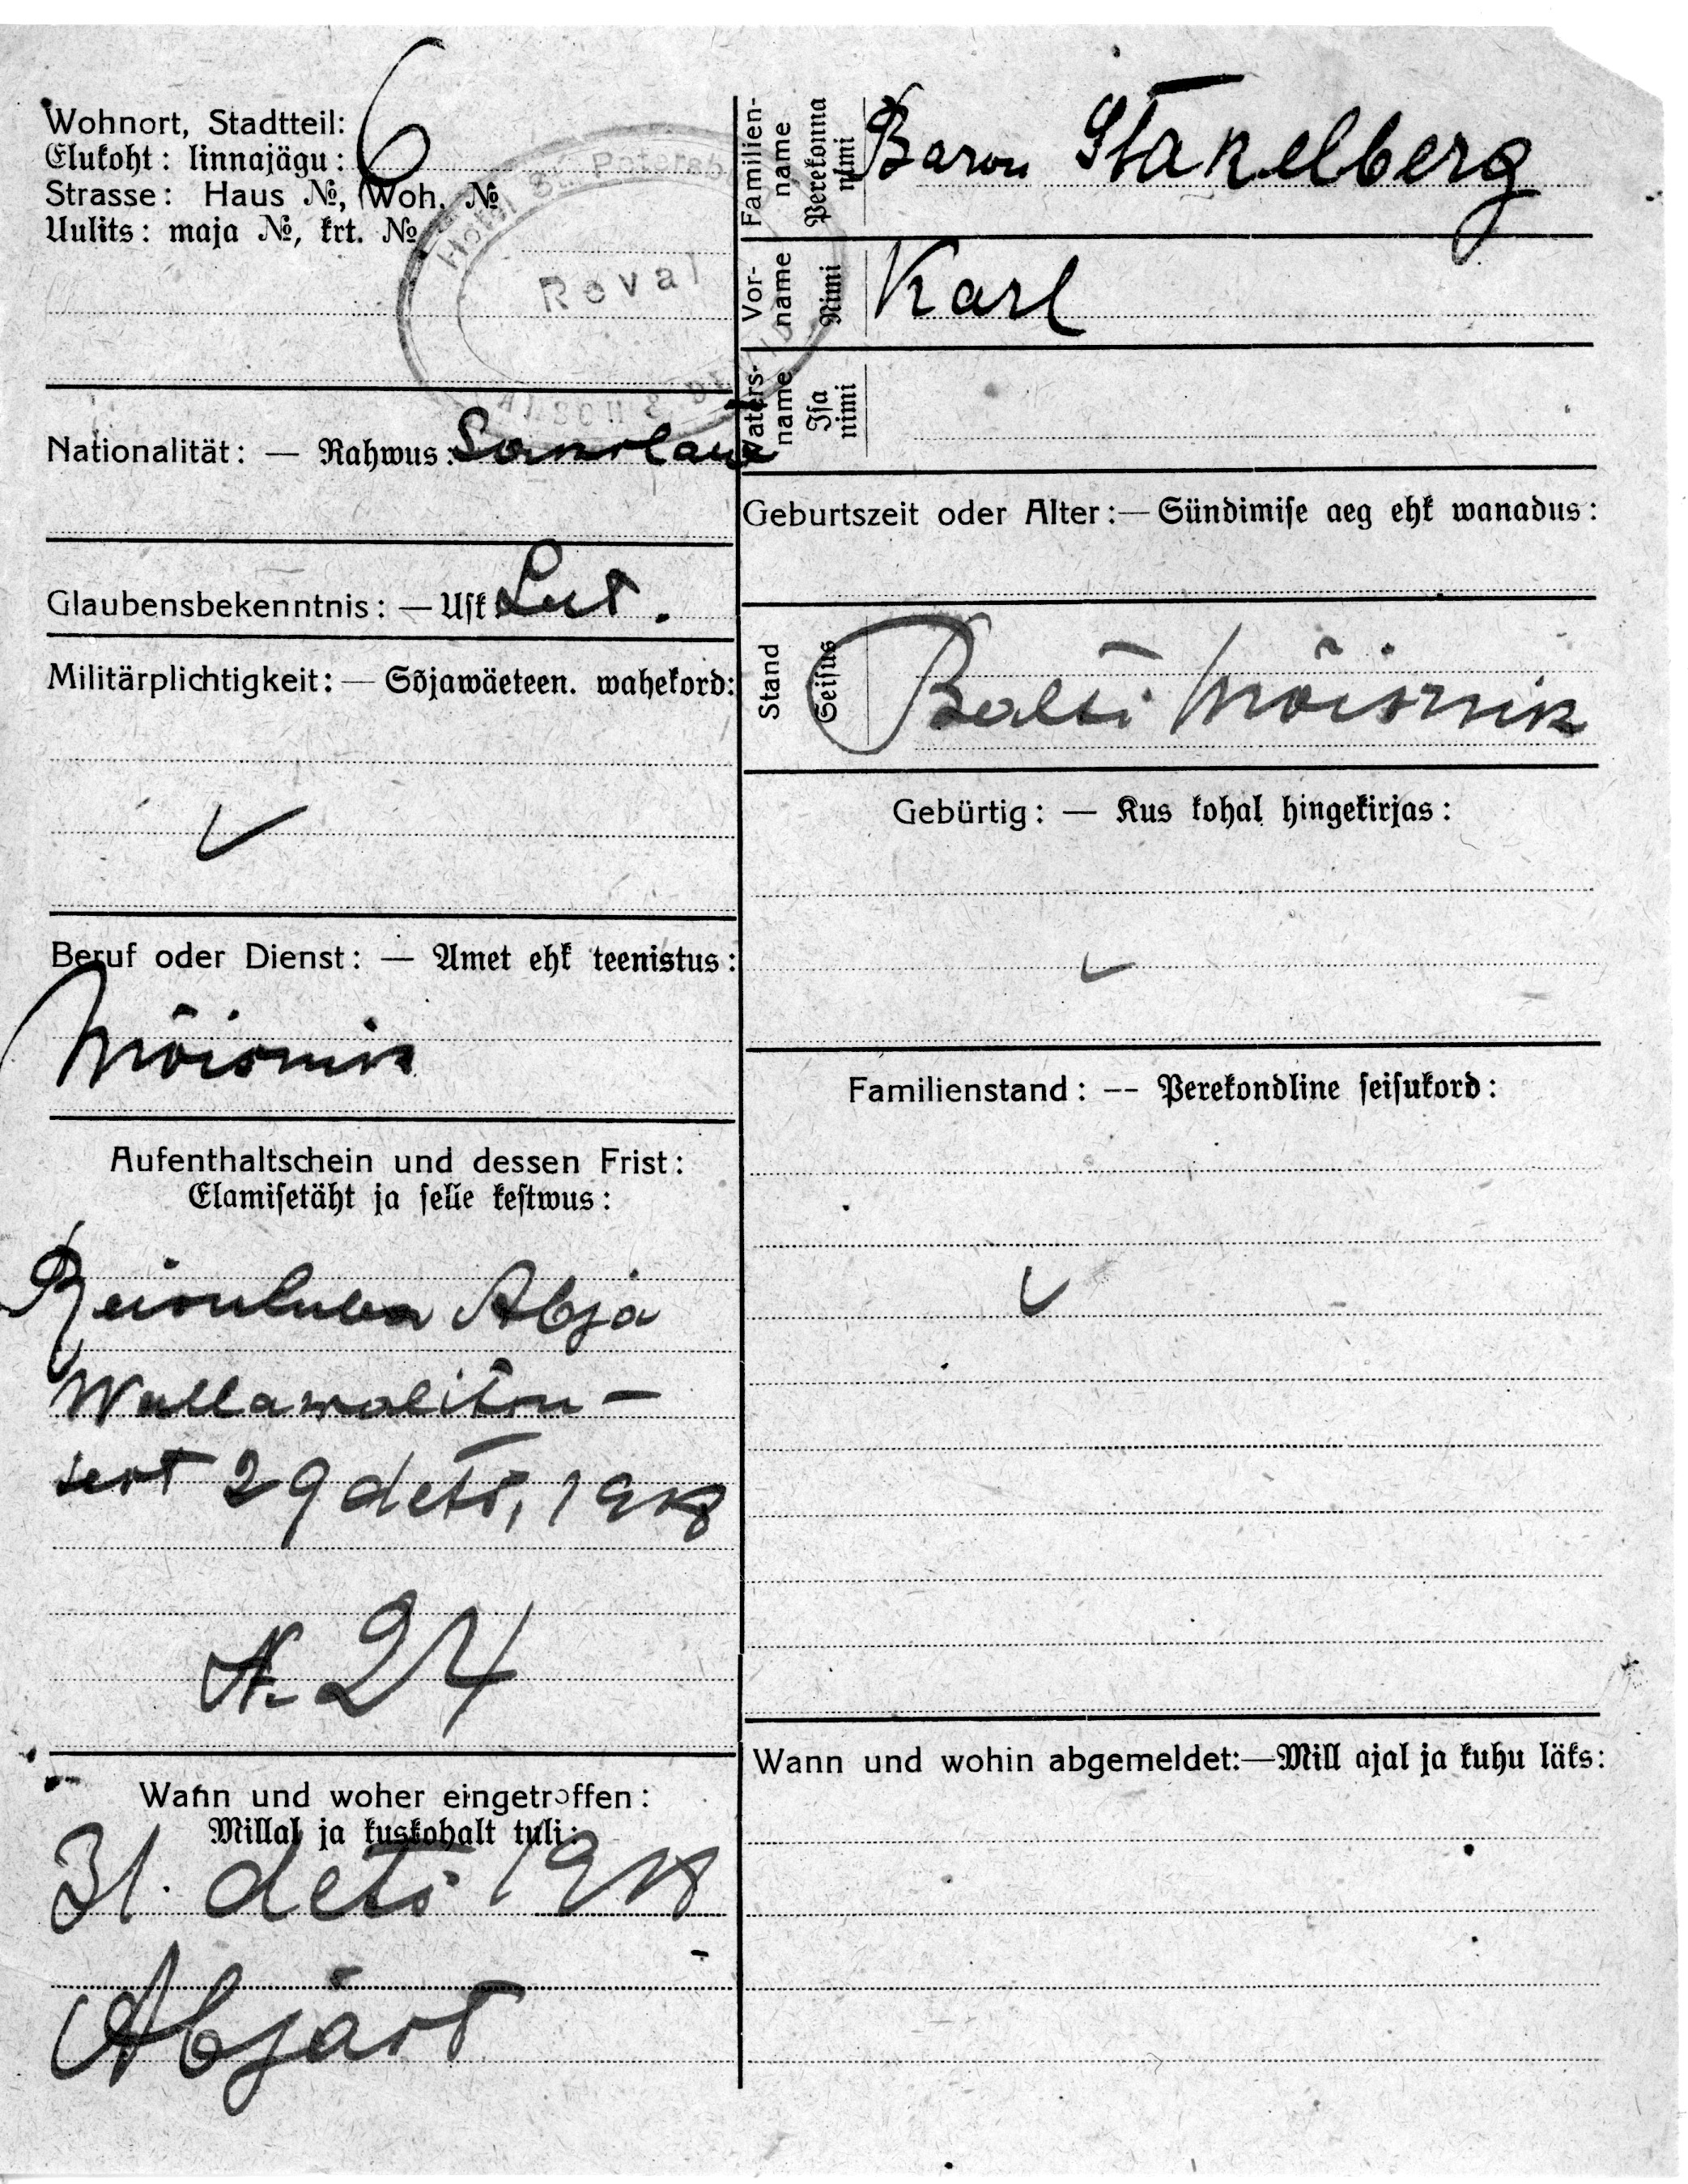 Wohnort, Stadtteil: 6
Elukoht: linnajägu:
Strasse: Haus №, Woh. №
Uulits: maja №, krt. №
Hotel St. Petersb
Reval
Nationalität: — Rahwus: Sakslane
Glaubensbekenntnis: — Usk Lut.
Militärplichtigkeit: — Sõjawäeteen. wahekord:
Beruf oder Dienst: — Amet ehk teenistus:
Mõisnik
Aufenthaltschein und dessen Frist:
Elamisetäht ja selle kestwus:
Reisuluba Abja
Wallawalitsu-
sest 29 dets, 1918
N. 24
Wann und woher eingetroffen:
Millal ja kuskohalt tuli:
31. dets 1918
Abjast
Familien-
name
Perekonna
nimi
Baron Stakelberg
Vor-
name
Nimi
Karl
Vaters-
name
Isa
nimi
Geburtszeit oder Alter: — Sündimise aeg ehk wanadus:
Stand
Seisus
Balti Mõisnik
Gebürtig: — Kus kohal hingekirjas:
Familienstand: -- Perekondline seisukord:
Wann und wohin abgemeldet:—Mill ajal ja kuhu läks: